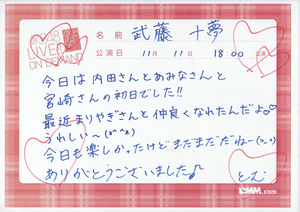 AKB48
LIVE!! ON DEMAND
名前 武藤 十夢
公演日 11月 11日 18:00 公演
今日は内田さんとあみなさんと
宮崎さんの初日でした!!
最近まりやぎさんと仲良くなれたんだよ♡
うれしい〜(o^^o)
今日も楽しかったけどまだまだだねー(>_<)
ありがとうございました♪
とむ
DMM.com